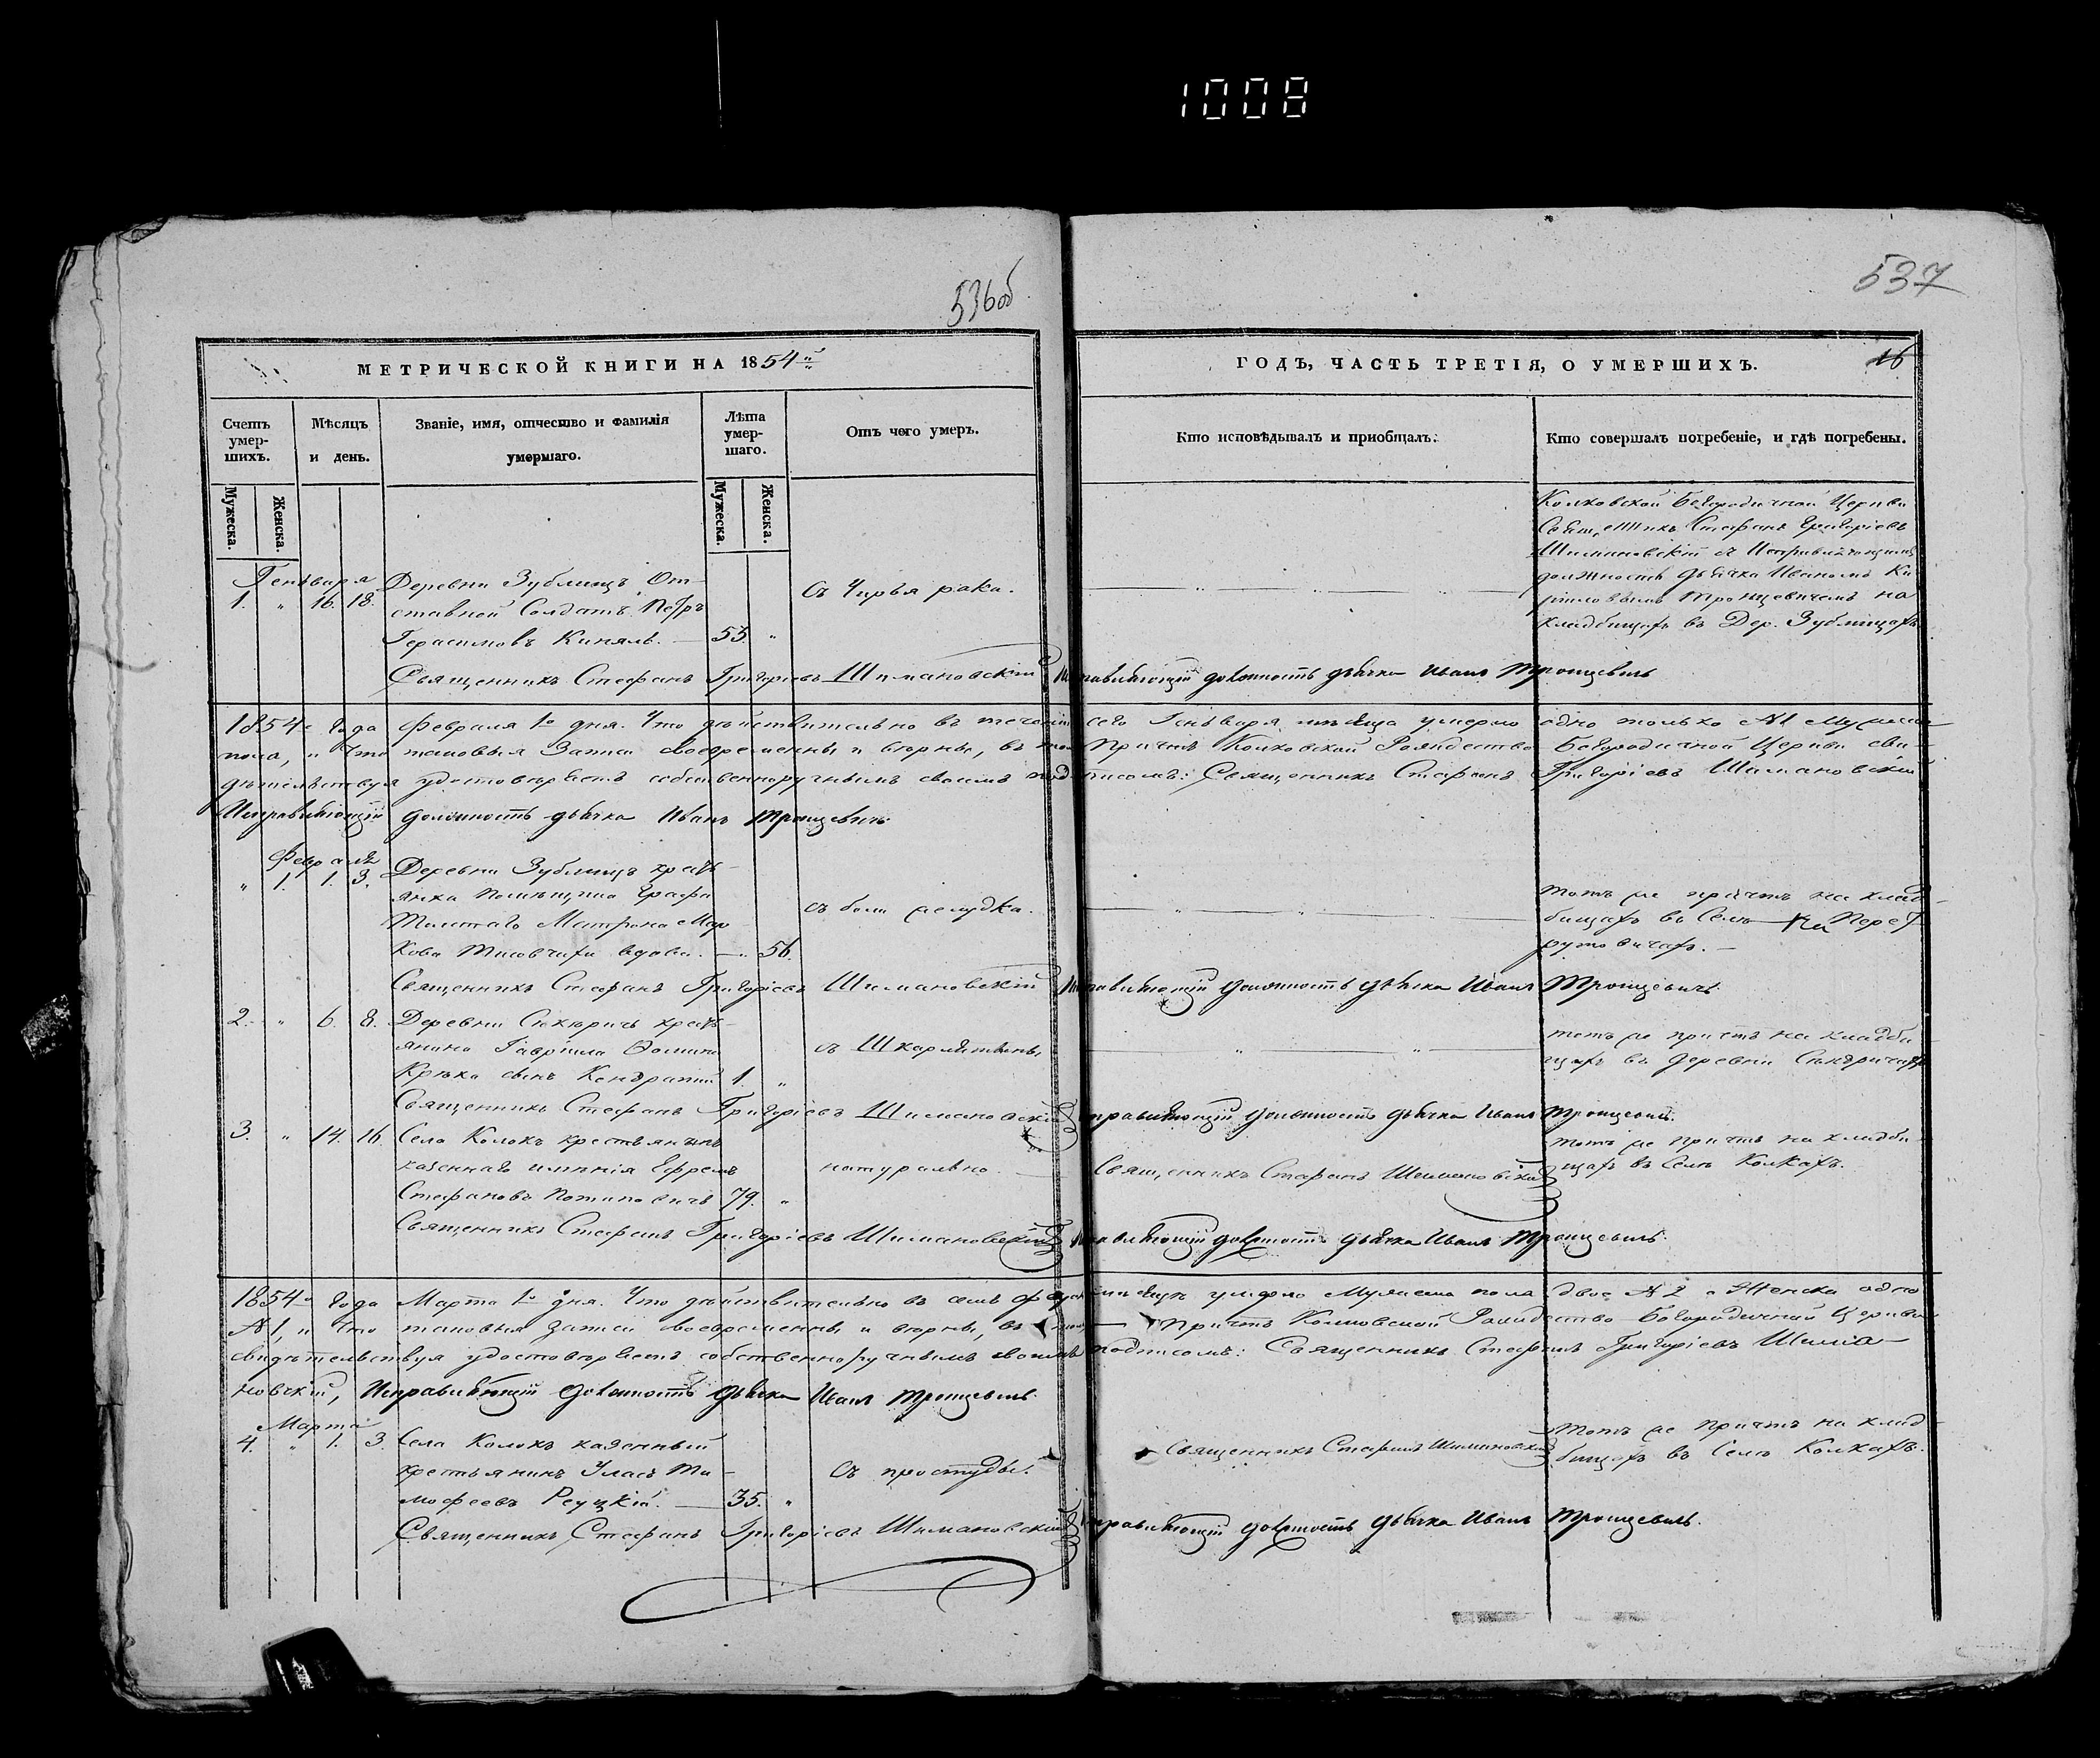 1008
536об
537
МЕТРИЧЕСКОЙ КНИГИ НА 1854й
ГОДЪ, ЧАСТЬ ТРЕТІЯ, О УМЕРШИХЪ.
16
Счетъ умер-шихъ.
Мѣсяцъ и день.
Званіе, имя, отчество и фамилія умершаго.
Лѣта умер-шаго.
Отъ чего умеръ.
Кто исповѣдывалъ и пріобщалъ.
Кто совершалъ погребеніе, и гдѣ погребены.
Мужеска.
Женска.
Мужеска.
Женска.
Генваря
1. " 16. 18.
Деревни Зублищъ От-
ставной Солдатъ Петръ
Герасимовъ Киналь. — 53. "
Съ Чирья рака.
Колковской Богородичной Церкви
Священникъ Стефанъ Григоріевъ
Шимановскій съ Исправляющимъ
должность дьячка Иваномъ Ки
риловымъ Троцевичемъ на
кладбищѣ въ Дер. Зублищахъ
Священникъ Стефанъ Григоріевъ Шимановскій Исправляющій должность дьячка Иванъ Троцевичъ
1854го Года Февраля 1го дня. Что дѣйствительно въ теченіи сего Генваря мѣсяца умерло одно только №1 Мужеска
пола, и что таковыя Записи своевременны и вѣрны, въ томъ Причтъ Колковской Рождество Богородичной Церкви сви-
дѣтельствуя удостовѣряетъ собственноручнымъ своимъ подписомъ: Священникъ Стефанъ Григоріевъ Шимановскій
Исправляющій должность дьячка Иванъ Троцевичъ
Февраля
" 1. 1. 3.
Деревни Зублищъ кресть-
янка помѣщика Графа
Толстаго Матрона Мар
кова вдова. — " 56.
съ боли желудка.
тотъ же причтъ на клад-
бищахъ въ Селѣ На Пере-
рутовичахъ. —
Священникъ Стефанъ Григоріевъ Шимановскій Исправляющій должность дьячка Иванъ Троцевичъ.
2. " 6. 8.
Деревни Сикиричъ кресть-
янина Гавріила Фомина
сынъ Кондратій 1. "
съ Шкарлятины
тотъ же причтъ на кладби
щахъ въ деревни Сикиричахъ
Священникъ Стефанъ Григоріевъ Шимановскій Исправляющій должность дьячка Иванъ Троцевичъ.
3. " 14. 16.
Села Колокъ крестьянинъ
казеннаго имѣнія Ефремъ
Стефановъ Потаповичъ 79. "
натурально. —
Священникъ Стефанъ Шимановскій
тотъ же причтъ на кладби-
щахъ въ Селѣ Колкахъ.
Священникъ Стефанъ Григоріевъ Шимановскій Исправляющій должность дьячка Иванъ Троцевичъ.
1854го Года Марта 1го дня. Что дѣйствительно въ семъ Февралѣ мѣсяцѣ умерло Мужеска пола двое №2 а Женска одно
№1, и что таковыя Записи своевременны и вѣрны, въ томъ — Причтъ Колковской Рождество-Богородичной Церкви
свидѣтельствуя удостовѣряетъ собственноручнымъ своимъ подписомъ: Священникъ Стефанъ Григоріевъ Шима-
новскій, Исправляющій должность дьячка Иванъ Троцевичъ.
Марта
4. " 1. 3.
Села Колокъ казенный
крестьянинъ Уласъ Ти-
мофеевъ Реуцкій. — 35. "
Съ простуды.
Священникъ Стефанъ Шимановскій
тотъ же причтъ на клад-
бищахъ въ Селѣ Колкахъ.
Священникъ Стефанъ Григоріевъ Шимановскій Исправляющій должность дьячка Иванъ Троцевичъ.